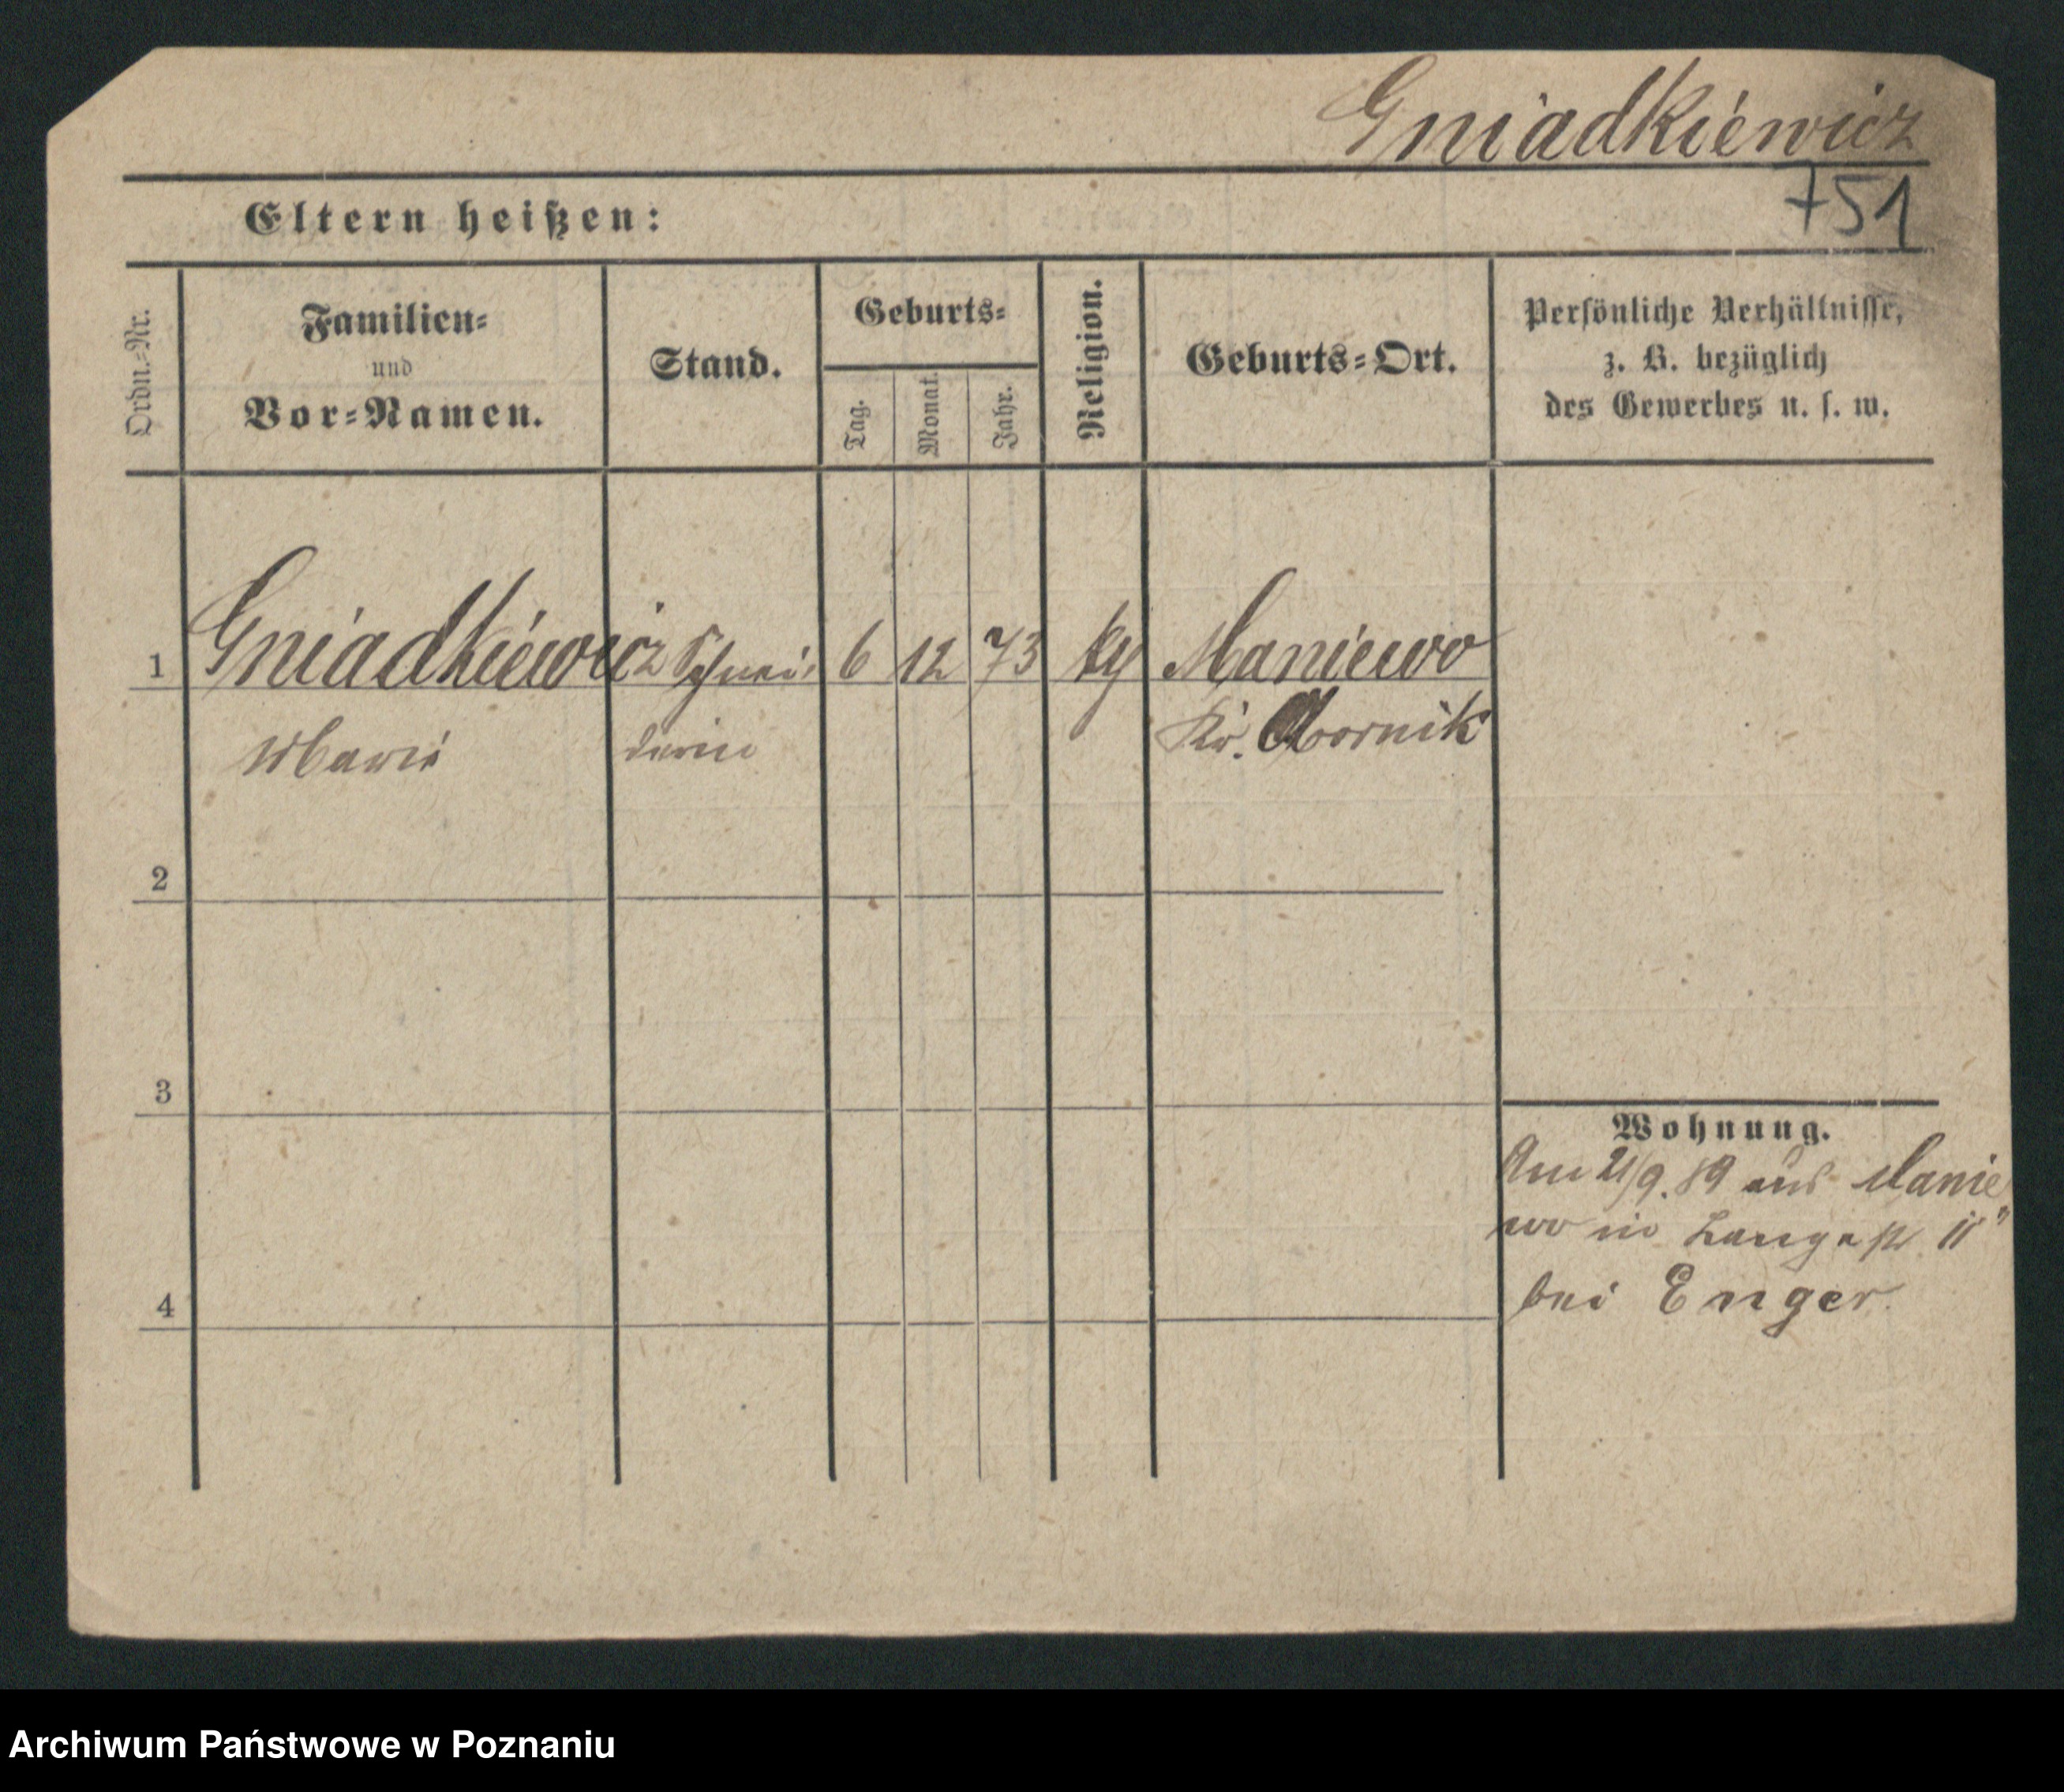 Gniadkiewicz
751
Eltern heißen:
Ordn.-Nr.
Familien-
und
Vor-Namen.
Stand.
Geburts-
Tag.
Monat.
Jahr.
Religion.
Geburts-Ort.
Persönliche Verhältnisse,
z. B. bezüglich
des Gewerbes u. s. w.
1 Gniadkiewicz Schnei- 6 12 73 Maniewo
Maria derin Kr. Obornik
2
3
4
Wohnung.
Am 21/9. 89 aus Manie
wo in Langestr. 11
bei Enger.
Archiwum Państwowe w Poznaniu